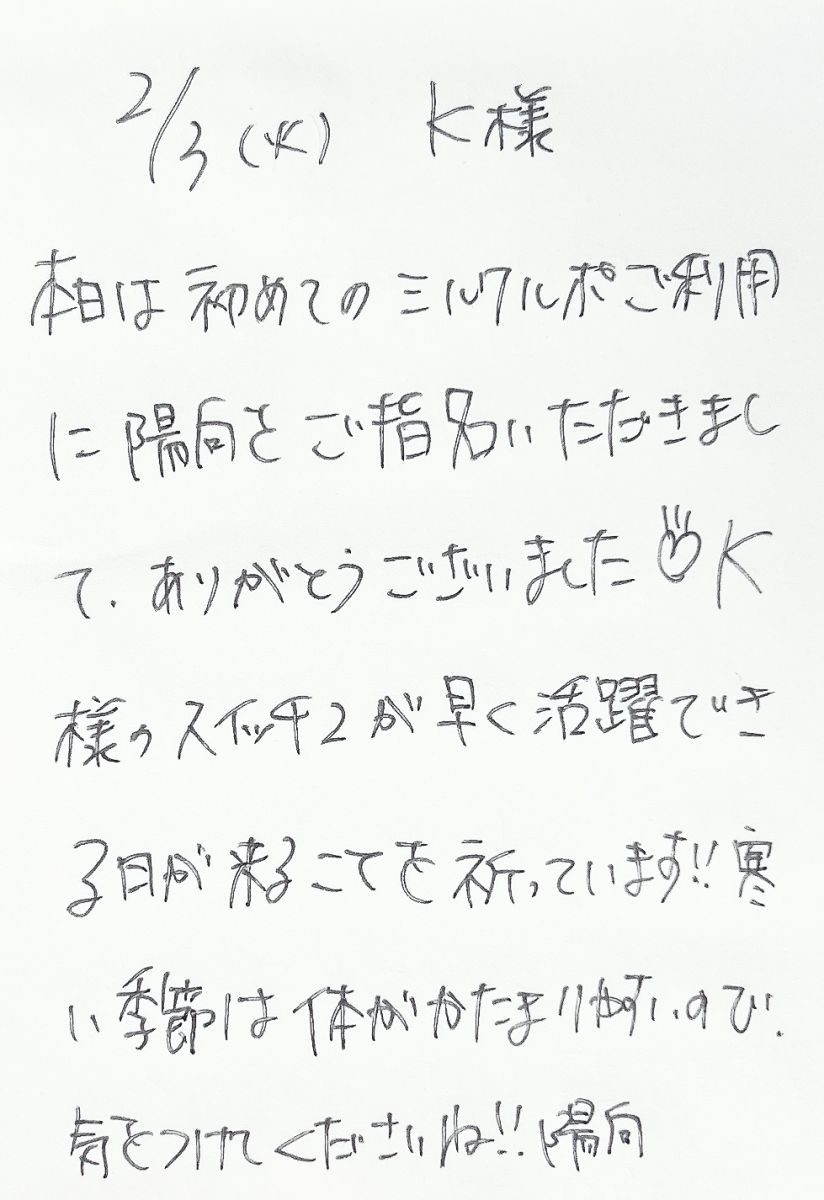 2/3(火) K様
本日は初めてのミルクルポご利用
に陽向をご指名いただきまし
て、ありがとうございましたK
様のスイッチ2が早く活躍でき
る日が来ることを祈っています!!寒
い季節は体がかたまりやすいので、
気をつけてくださいね!!陽向